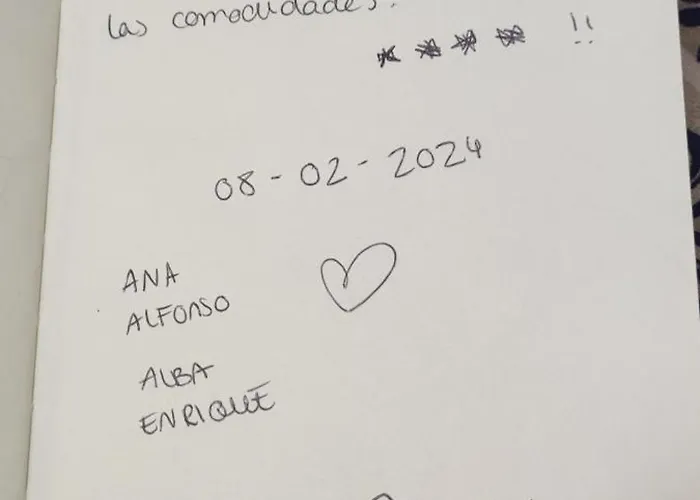 las comodidades.
**** !!
08-02-2024
ANA
ALFONSO
ALBA
ENRIQUE